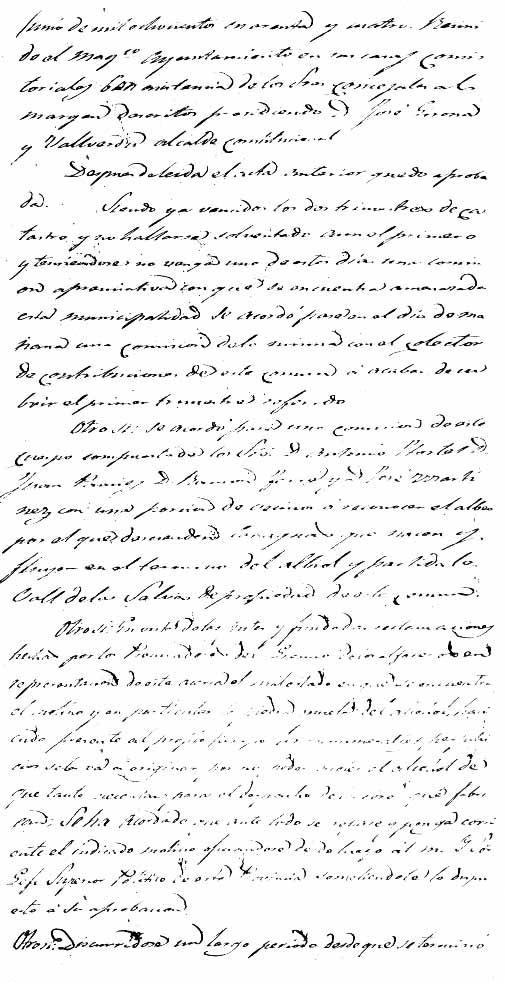 Junio de mil ochocientos cuarenta y cuatro. Reuni
do el Magco Ayuntamiento en sus casas consis
toriales con asistencia de los Sres concejales al
margen descritos presidiendo D José Gerona
y Vallverdu alcalde constitucional
Despues de leida el acta anterior quedo aproba
da. Siendo ya vencidos los dos trimestres de ca
tastro, y no hallarse solventado aun el primero
y temiendose no venga uno de estos dias una comisi
on apremiativa con que se encuentra amenazada
esta municipalidad se acordó pase en el dia de ma
ñana una comision de la misma con el colector
de contribuciones de este comun a acabar de cu
brir el primer trimestre referido
Otro si: se acordó pase una comision de este
cuerpo compuesta de los Sres D Antonio D
Juan D Ramon y D José Marti
nez con una porcion de vecinos a reconocer el
por el que descienden las aguas que nacen y
fluyen en el termino del y partida la
Vall de las Salvias de propiedad de este comun.
Otro si: En vista de las justas y fundadas reclamaciones
hechas por los del en
representacion de este acerca el mal estado en que se encuentra
el molino y en particular la piedra muela del haci
endo presente al propio tiempo los perjui
cios se le va a originar por no poder el de
que tanto necesitan para el despacho del que fabri
can: Se ha acordado que ante todo se repare y ponga corri
ente el indicado molino oficiandose de al M. I. Sor
Gefe Superior Politico de esta Provincia sometiendole lo dispu
esto á su aprobacion
Otro si: Discurridose un largo periodo desde que se terminó